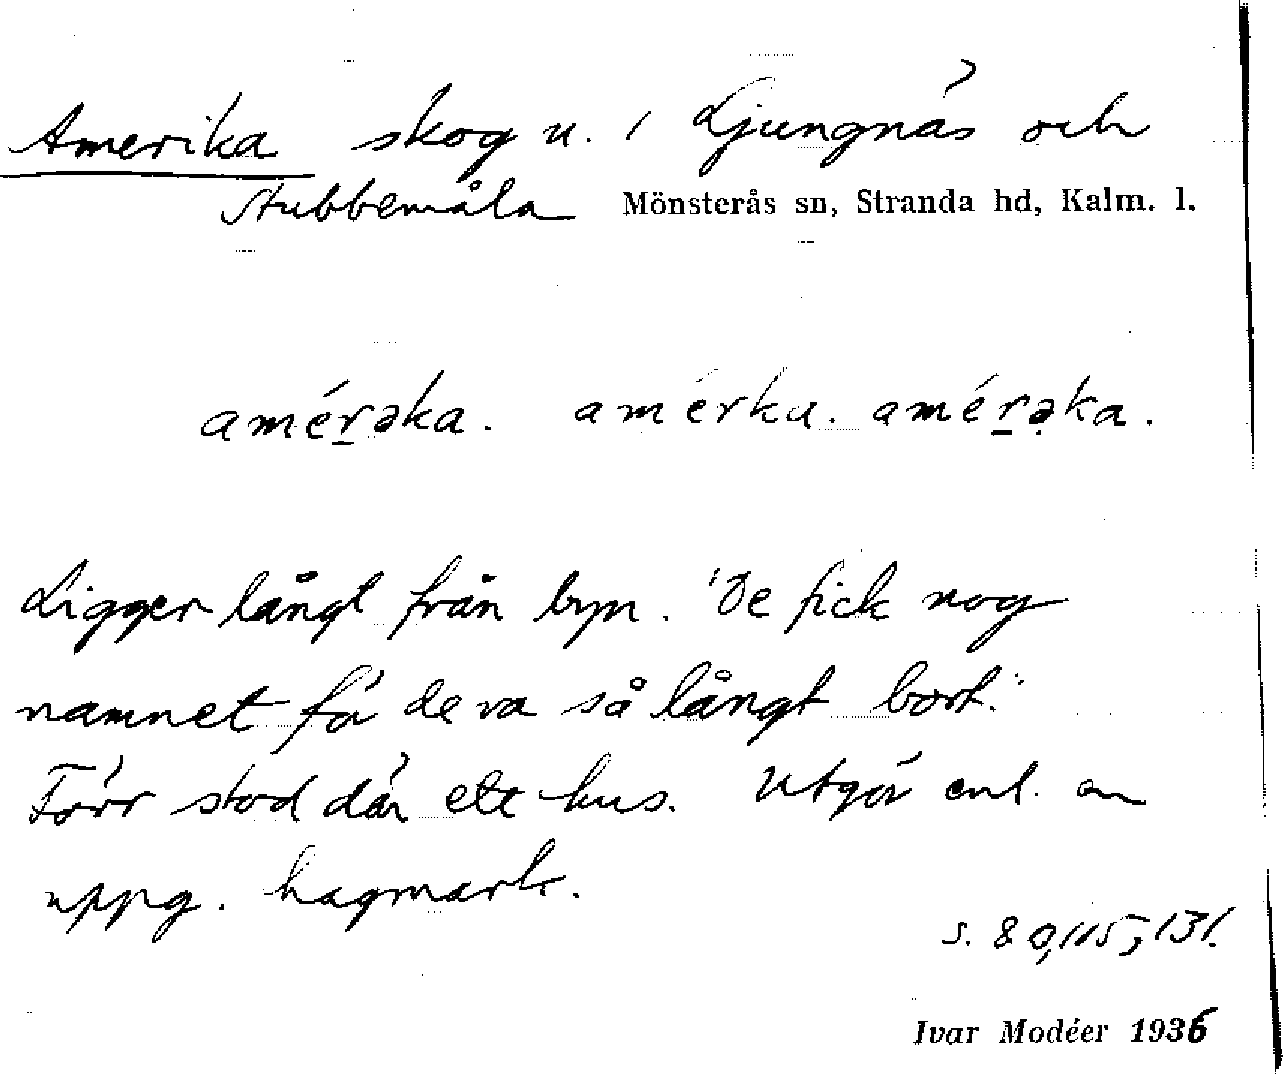 Amerika skog u. i Ljungnäs och
Stubbemåla Mönsterås sn, Stranda hd, Kalm. l.
améṟəka. amérka. améṟə̣ka.
Ligger långt från byn. "De fick nog
namnet fö de va så långt bort."
Förr stod där ett hus. Utgör enl. en
uppg. hagmark.
s. 80, 115, 131.
Ivar Modéer 1936